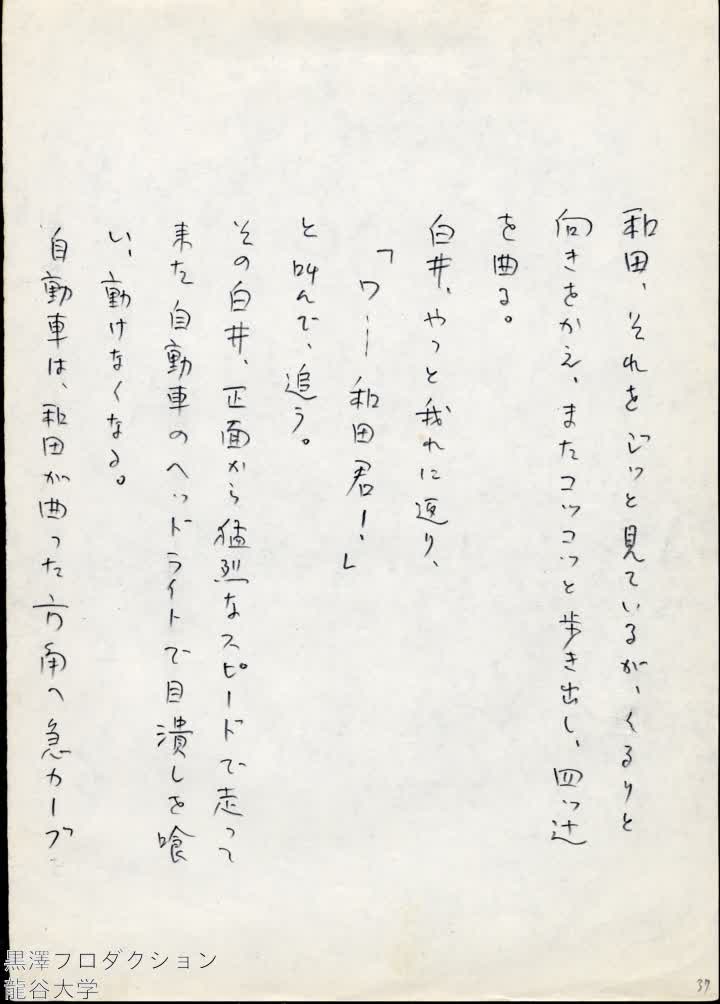 和田、それをジッと見ているが、くるりと
向きをかえ、またコツコツと歩き出し、四ツ辻
を曲る。
白井、やっと我れに返り、
「ワー！和田君！」
と叫んで、追う。
その白井、正面から猛烈なスピードで走って
来た自動車のヘッドライトで目潰しを喰
い、動けなくなる。
自動車は、和田が曲った方角へ急カーブ
黒澤プロダクション
龍谷大学
37